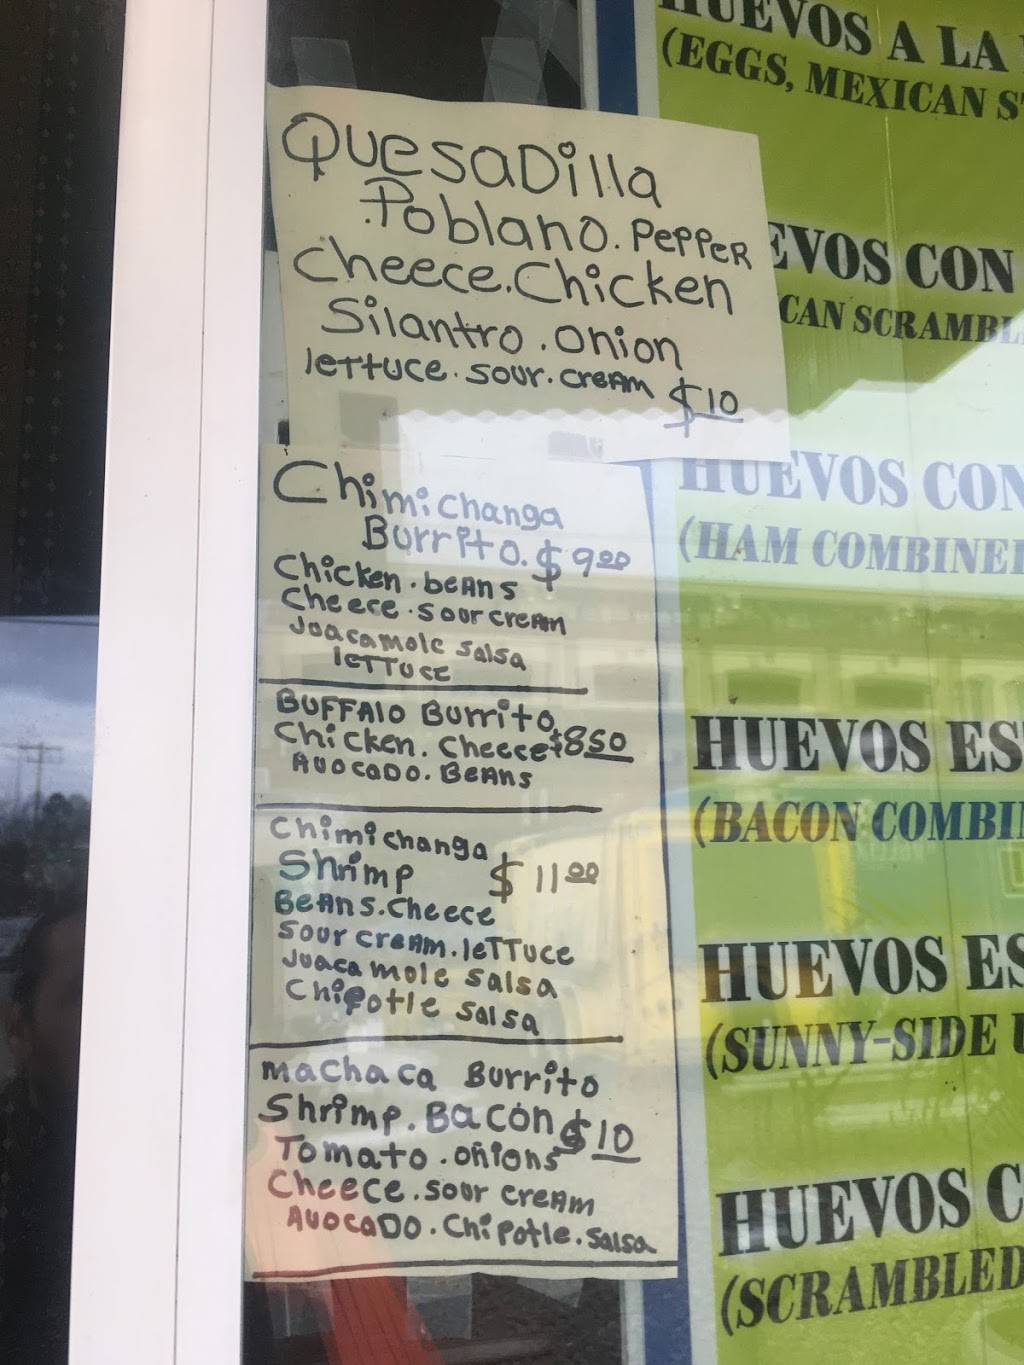 QuesaDilla
Poblano. PePPeR
Cheece. Chicken
Silantro. onion
leTTuce. sour. creAm $10
Chimichanga
Burrito. $9.00
Chicken. beAns
Cheece. sour creAm
Juacamole salsa
leTTuce
BUFFAlo Burrito
Chicken. Cheece $8.50
Avocado. BeAns
Chimichanga
Shrimp $11.00
BeAns. Cheece
sour creAm. leTTuce
Juacamole salsa
Chipotle salsa
machaca Burrito
Shrimp. Bacón $10
Tomato. oñions
Cheece. sour creAm
AvocaDo. Chipotle. salsa
HUEVOS A LA
(EGGS, MEXICAN S
EVOS CON
CAN SCRAMBL
HUEVOS CON
(HAM COMBINE
HUEVOS ES
(BACON COMBI
HUEVOS ES
(SUNNY-SIDE U
HUEVOS C
(SCRAMBLED